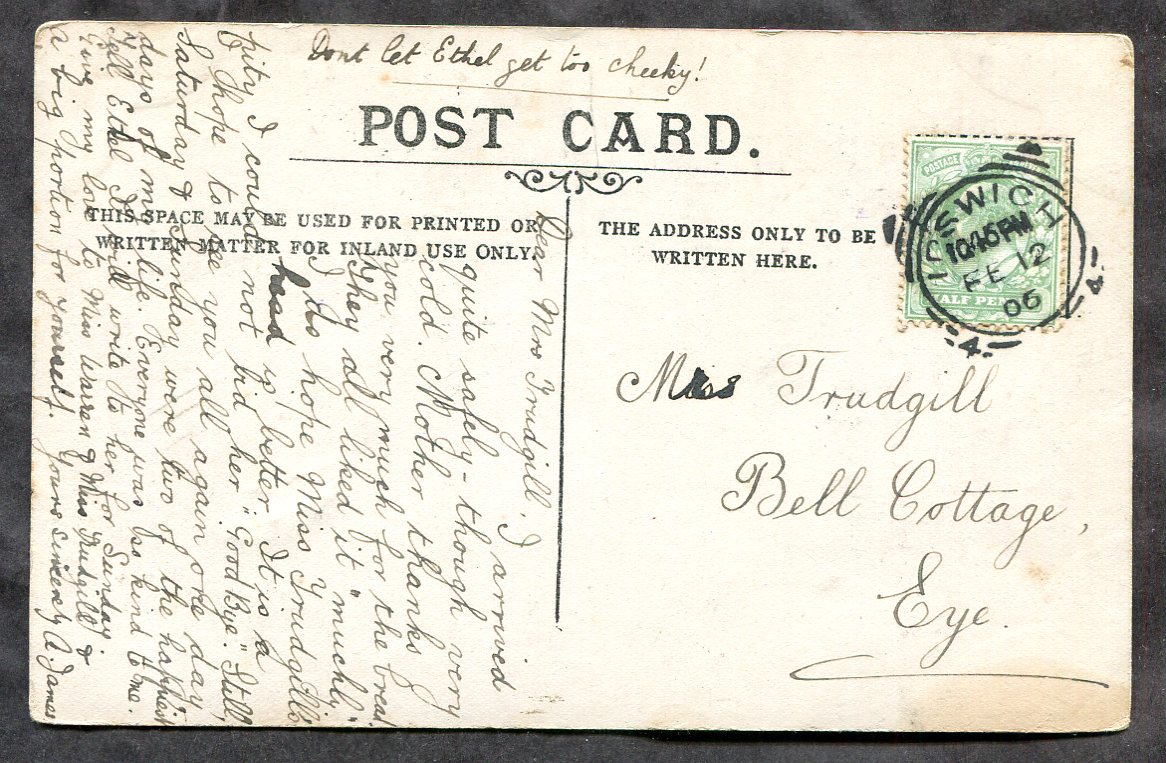 Dont let Ethel get too cheeky!
POST CARD.
THIS SPACE MAY BE USED FOR PRINTED OR
WRITTEN MATTER FOR INLAND USE ONLY.
THE ADDRESS ONLY TO BE
WRITTEN HERE.
IPSWICH
10.45 PM
FE 12
06
4
4
POSTAGE
HALF PENNY
Mrs Trudgill
Bell Cottage,
Eye.
Dear Mrs Trudgill, I arrived
quite safely - though very
cold. Mother thanks
you very much for the bread
They all liked it "muchly"
I do hope Miss Trudgill's
head is better. It is a
pity I could not bid her "Good Bye". Still
I hope to see you all again one day
Saturday & Sunday were two of the happiest
days of my life. Everyone was so kind to me.
Tell Ethel I will write to her for Sunday.
Give my love to Miss Warren & Miss Trudgill &
a big portion for yourself. Yours sincerely A. James